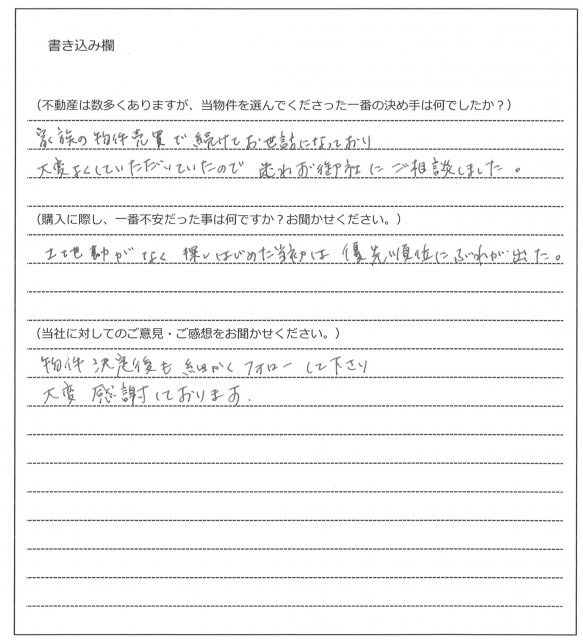 書き込み欄
(不動産は数多くありますが、当物件を選んでくださった一番の決め手は何でしたか?)
家族の物件売買で続けてお世話になっており
大変よくしていただいていたので 迷わず御社にご相談しました。
(購入に際し、一番不安だった事は何ですか?お聞かせください。)
土地勘がなく 探しはじめた当初は 優先順位にぶれが出た。
(当社に対してのご意見・ご感想をお聞かせください。)
物件決定後も 細かくフォローして下さり
大変 感謝しております.